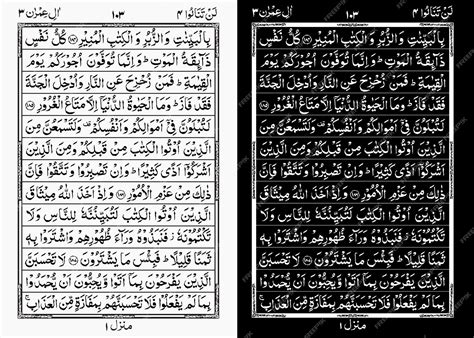 لَنْ تَنَالُوا ٤
١٠٣
اٰلِ عِمْرٰن ٣
بِالْبَيِّنٰتِ وَ الزُّبُرِ وَ الْكِتٰبِ الْمُنِيْرِ ﴿١٨٤﴾ كُلُّ نَفْسٍ
ذَآئِقَةُ الْمَوْتِ ؕ وَ اِنَّمَا تُوَفَّوْنَ اُجُوْرَكُمْ يَوْمَ
الْقِيٰمَةِ ؕ فَمَنْ زُحْزِحَ عَنِ النَّارِ وَ اُدْخِلَ الْجَنَّةَ
فَقَدْ فَازَ ؕ وَ مَا الْحَيٰوةُ الدُّنْيَاۤ اِلَّا مَتَاعُ الْغُرُوْرِ ﴿١٨٥﴾
لَتُبْلَوُنَّ فِيْۤ اَمْوَالِكُمْ وَ اَنْفُسِكُمْ وَ لَتَسْمَعُنَّ مِنَ
الَّذِيْنَ اُوْتُوا الْكِتٰبَ مِنْ قَبْلِكُمْ وَ مِنَ الَّذِيْنَ
اَشْرَكُوْۤا اَذًى كَثِيْرًا ؕ وَ اِنْ تَصْبِرُوْا وَ تَتَّقُوْا فَاِنَّ
ذٰلِكَ مِنْ عَزْمِ الْاُمُوْرِ ﴿١٨٦﴾ وَ اِذْ اَخَذَ اللّٰهُ مِيْثَاقَ
الَّذِيْنَ اُوْتُوا الْكِتٰبَ لَتُبَيِّنُنَّهٗ لِلنَّاسِ وَ لَا
تَكْتُمُوْنَهٗ ؗ فَنَبَذُوْهُ وَرَآءَ ظُهُوْرِهِمْ وَ اشْتَرَوْا بِهٖ
ثَمَنًا قَلِيْلًا ؕ فَبِئْسَ مَا يَشْتَرُوْنَ ﴿١٨٧﴾ لَا تَحْسَبَنَّ
الَّذِيْنَ يَفْرَحُوْنَ بِمَاۤ اَتَوْا وَّ يُحِبُّوْنَ اَنْ يُّحْمَدُوْا
بِمَا لَمْ يَفْعَلُوْا فَلَا تَحْسَبَنَّهُمْ بِمَفَازَةٍ مِّنَ الْعَذَابِ ۚ
منزل ١
لَنْ تَنَالُوا ٤
١٠٣
اٰلِ عِمْرٰن ٣
بِالْبَيِّنٰتِ وَ الزُّبُرِ وَ الْكِتٰبِ الْمُنِيْرِ ﴿١٨٤﴾ كُلُّ نَفْسٍ
ذَآئِقَةُ الْمَوْتِ ؕ وَ اِنَّمَا تُوَفَّوْنَ اُجُوْرَكُمْ يَوْمَ
الْقِيٰمَةِ ؕ فَمَنْ زُحْزِحَ عَنِ النَّارِ وَ اُدْخِلَ الْجَنَّةَ
فَقَدْ فَازَ ؕ وَ مَا الْحَيٰوةُ الدُّنْيَاۤ اِلَّا مَتَاعُ الْغُرُوْرِ ﴿١٨٥﴾
لَتُبْلَوُنَّ فِيْۤ اَمْوَالِكُمْ وَ اَنْفُسِكُمْ وَ لَتَسْمَعُنَّ مِنَ
الَّذِيْنَ اُوْتُوا الْكِتٰبَ مِنْ قَبْلِكُمْ وَ مِنَ الَّذِيْنَ
اَشْرَكُوْۤا اَذًى كَثِيْرًا ؕ وَ اِنْ تَصْبِرُوْا وَ تَتَّقُوْا فَاِنَّ
ذٰلِكَ مِنْ عَزْمِ الْاُمُوْرِ ﴿١٨٦﴾ وَ اِذْ اَخَذَ اللّٰهُ مِيْثَاقَ
الَّذِيْنَ اُوْتُوا الْكِتٰبَ لَتُبَيِّنُنَّهٗ لِلنَّاسِ وَ لَا
تَكْتُمُوْنَهٗ ؗ فَنَبَذُوْهُ وَرَآءَ ظُهُوْرِهِمْ وَ اشْتَرَوْا بِهٖ
ثَمَنًا قَلِيْلًا ؕ فَبِئْسَ مَا يَشْتَرُوْنَ ﴿١٨٧﴾ لَا تَحْسَبَنَّ
الَّذِيْنَ يَفْرَحُوْنَ بِمَاۤ اَتَوْا وَّ يُحِبُّوْنَ اَنْ يُّحْمَدُوْا
بِمَا لَمْ يَفْعَلُوْا فَلَا تَحْسَبَنَّهُمْ بِمَفَازَةٍ مِّنَ الْعَذَابِ ۚ
منزل ١